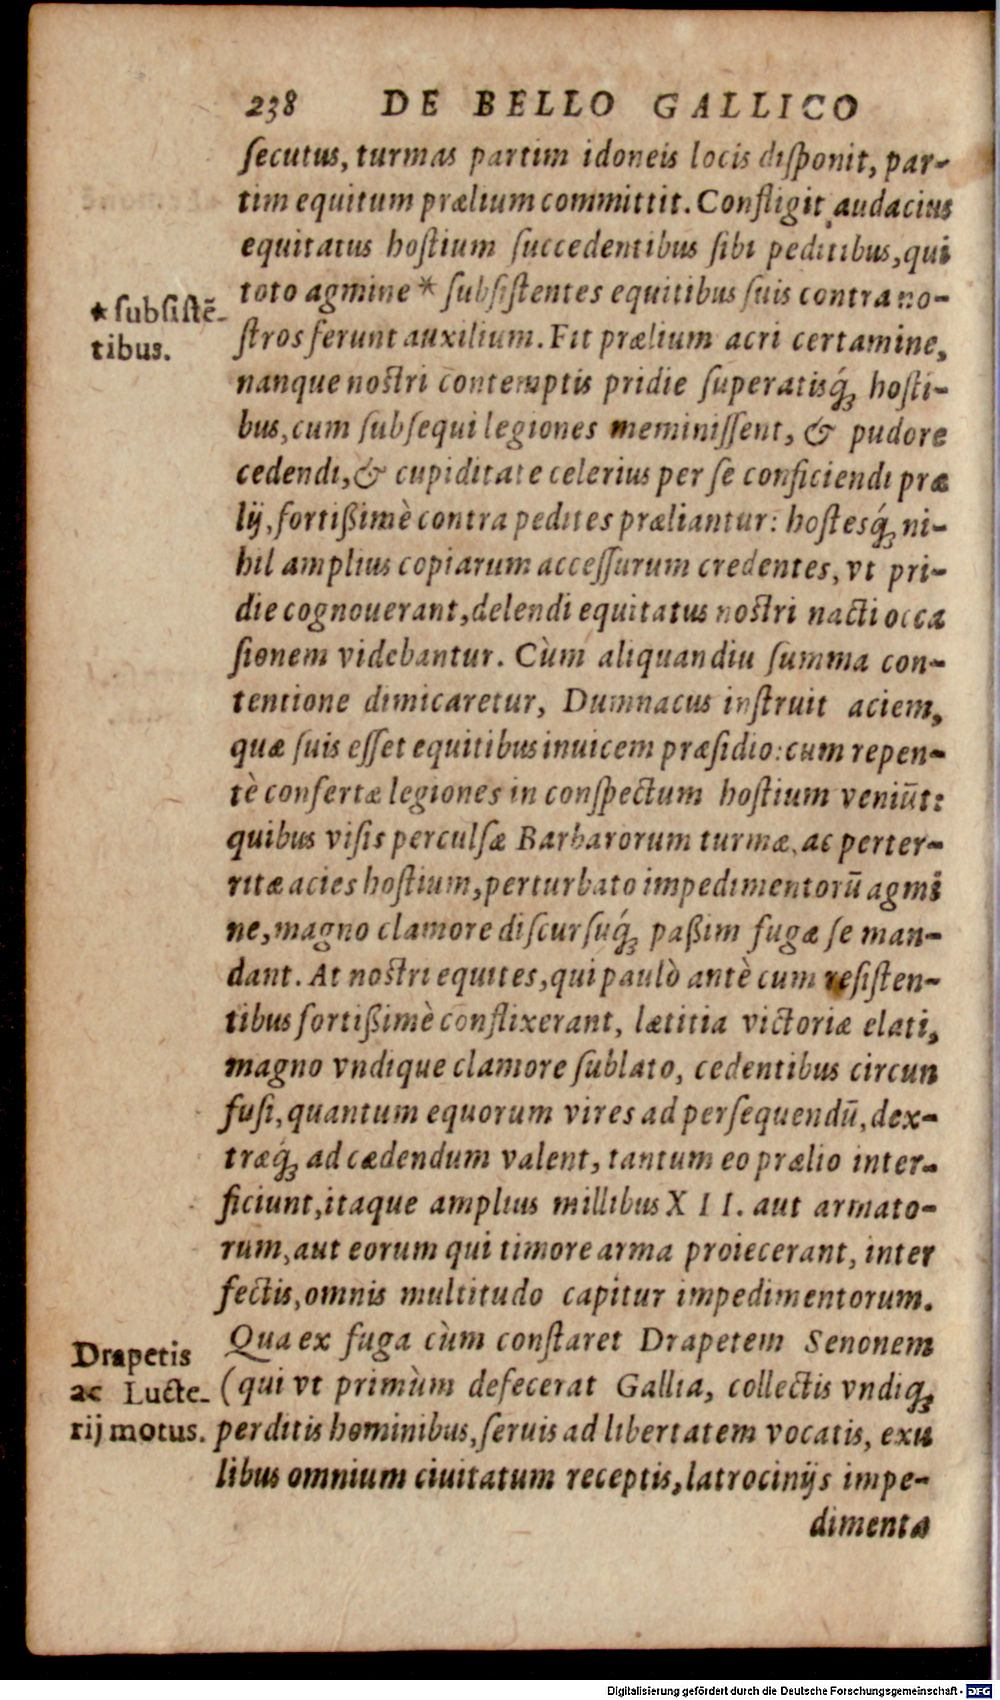 238 DE BELLO GALLICO
ſecutus, turmas partim idoneis locis diſponit, par-
tim equitum prælium committit. Confligit audacius
equitatus hoſtium ſuccedentibus ſibi peditibus, qui
toto agmine * ſubſiſtentes equitibus ſuis contra no-
ſtros ferunt auxilium. Fit prælium acri certamine,
nanque noſtri contemptis pridie ſuperatisq́ꝫ hoſti-
bus, cum ſubſequi legiones meminiſſent, & pudore
cedendi, & cupiditate celerius per ſe conficiendi præ
lij, fortißimè contra pedites præliantur: hoſtesq́ꝫ ni-
hil amplius copiarum acceſſurum credentes, vt pri-
die cognouerant, delendi equitatus noſtri nacti occa
ſionem videbantur. Cùm aliquandiu ſumma con-
tentione dimicaretur, Dumnacus inſtruit aciem,
quæ ſuis eſſet equitibus inuicem præſidio: cum repen-
tè confertæ legiones in conſpectum hoſtium veniũt:
quibus viſis perculſæ Barbarorum turmæ, ac perter-
ritæ acies hoſtium, perturbato impedimentorũ agmi
ne, magno clamore diſcurſuq́ꝫ paßim fugæ ſe man-
dant. At noſtri equites, qui paulò antè cum reſiſten-
tibus fortißimè conflixerant, lætitia victoriæ elati,
magno vndique clamore ſublato, cedentibus circun
fuſi, quantum equorum vires ad perſequendũ, dex-
træq́ꝫ ad cædendum valent, tantum eo prælio inter-
ficiunt, itaque amplius millibus XII. aut armato-
rum, aut eorum qui timore arma proiecerant, inter
fectis, omnis multitudo capitur impedimentorum.
Qua ex fuga cùm conſtaret Drapetem Senonem
(qui vt primùm defecerat Gallia, collectis vndiqꝫ
perditis hominibus, ſeruis ad libertatem vocatis, exu
libus omnium ciuitatum receptis, latrocinijs impe-
dimenta
* ſubſiſtẽ-
tibus.
Drapetis
ac Lucte-
rij motus.
Digitalisierung gefördert durch die Deutsche Forschungsgemeinschaft - DFG